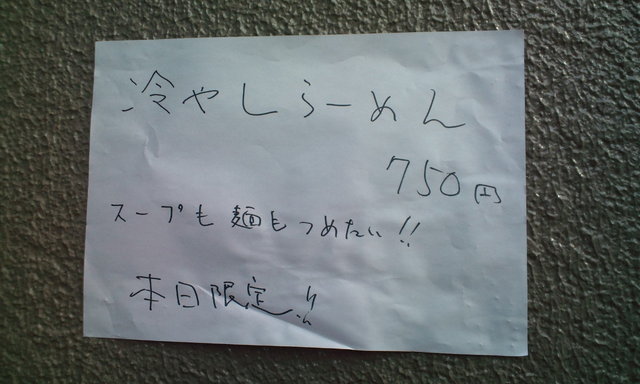 冷やしらーめん
750円
スープも麺もつめたい!!
本日限定!!